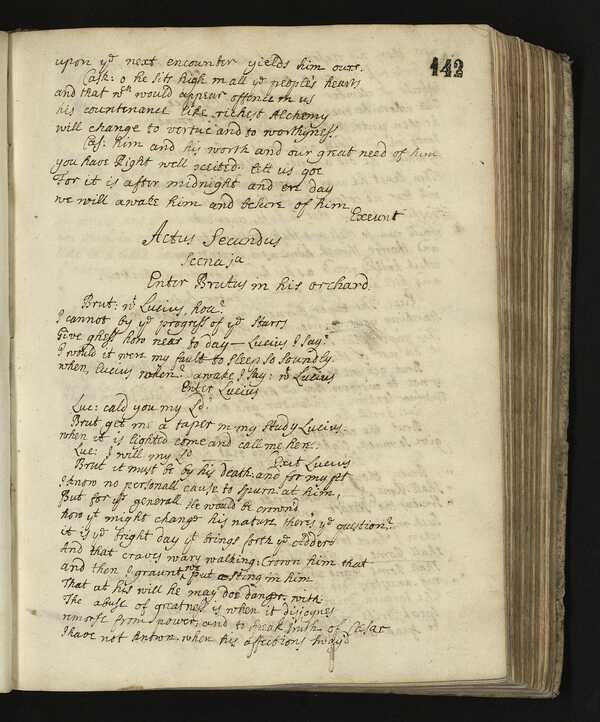 142
upon yᵉ next encounter yields him ours.
Cask: o he sits high in all yᵉ people's hearts
and that wᶜʰ would appear offence in us
his countenance like richest Alchemy
will change to vertue and to worthyness.
Cas: him and his worth and our great need of him
you have Right well  let us goe
For it is after midnight and ere day
we will awake him and be sure of him
Exeunt
Actus Secundus
Scena ja
Enter Brutus in his orchard
Brut: wᵗ Lucius, hou?
I cannot by yᵉ progress of yᵉ starrs
Give ghess how near to day— Lucius I say?
I would it were my fault to sleep so soundly
when, Lucius when? awake I say: wᵗ Lucius
Enter Lucius
Luc: cald you my Ld:
Brut get me a taper in my study Lucius.
when it is lighted come and call me here.
Luc: I will my Lo
Exit Lucius
Brut it must be by his death: and for my pt
I know no personall cause to spurn at him,
But for yᵉ generall. He would be crownd
how yᵗ might change his nature there's yᵉ question?
it is yᵉ bright day yᵗ brings forth yᵉ adder
And that craves wary walking: Crown him that
and then I graunt we put a sting in him
That at his will he may doe danger with
The abuse of greatness is when it disjoynes
remorse from power; and to speak truth of Cæsar
I have not known when his affections sway'd